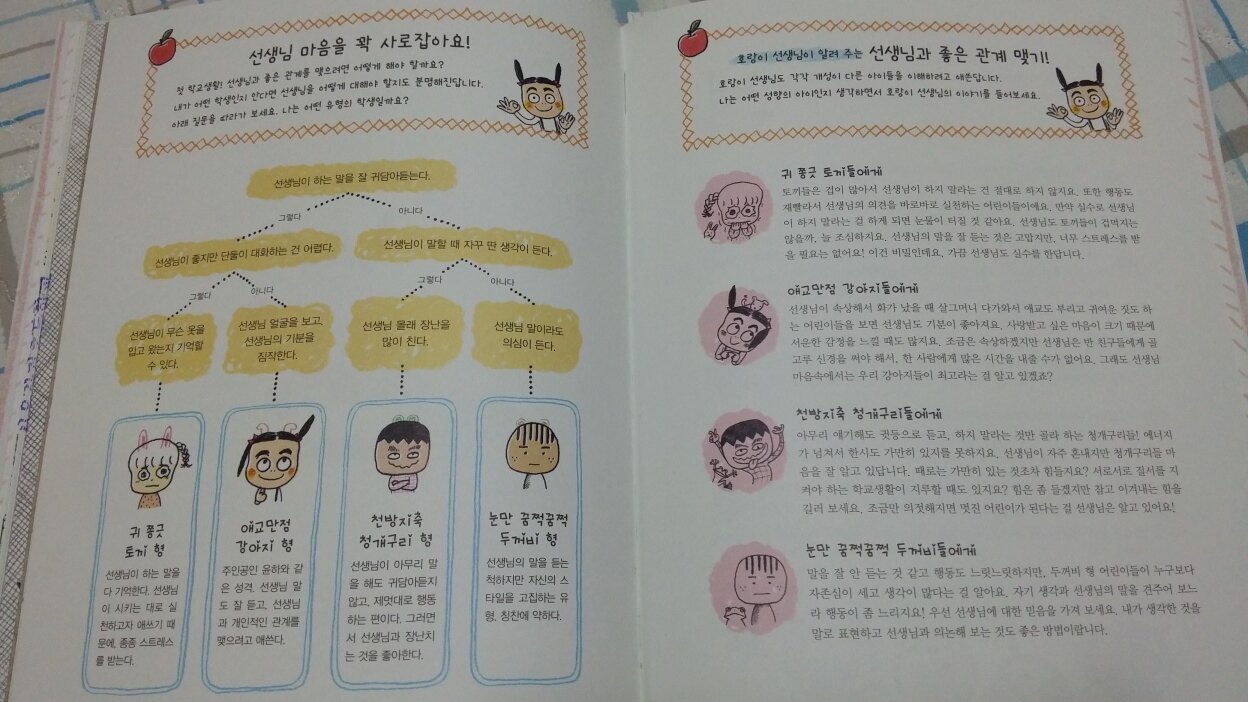 선생님 마음을 꽉 사로잡아요!
첫 학교생활! 선생님과 좋은 관계를 맺으려면 어떻게 해야 할까요?
내가 어떤 학생인지 안다면 선생님을 어떻게 대해야 할지도 분명해진답니다.
아래 질문을 따라가 보세요. 나는 어떤 유형의 학생일까요?
선생님이 하는 말을 잘 귀담아듣는다.
그렇다
아니다
선생님이 좋지만 단둘이 대화하는 건 어렵다.
선생님이 말할 때 자꾸 딴 생각이 든다.
그렇다
아니다
그렇다
아니다
선생님이 무슨 옷을
입고 왔는지 기억할
수 있다.
선생님 얼굴을 보고,
선생님의 기분을
짐작한다.
선생님 몰래 장난을
많이 친다.
선생님 말이라도
의심이 든다.
귀 쫑긋
토끼 형
선생님이 하는 말을
다 기억한다. 선생님
이 시키는 대로 실
천하고자 애쓰기 때
문에, 종종 스트레스
를 받는다.
애교만점
강아지 형
주인공인 윤하와 같
은 성격. 선생님 말
도 잘 듣고, 선생님
과 개인적인 관계를
맺으려고 애쓴다.
천방지축
청개구리 형
선생님이 아무리 말
을 해도 귀담아듣지
않고, 제멋대로 행동
하는 편이다. 그러면
서 선생님과 장난치
는 것을 좋아한다.
눈만 꿈쩍꿈쩍
두꺼비 형
선생님의 말을 듣는
척하지만 자신의 스
타일을 고집하는 유
형. 칭찬에 약하다.
호랑이 선생님이 알려 주는 선생님과 좋은 관계 맺기!
호랑이 선생님도 각각 개성이 다른 아이들을 이해하려고 애쓴답니다.
나는 어떤 성향의 아이인지 생각하면서 호랑이 선생님의 이야기를 들어보세요.
귀 쫑긋 토끼들에게
토끼들은 겁이 많아서 선생님이 하지 말라는 건 절대로 하지 않지요. 또한 행동도
재빨라서 선생님의 의견을 바로바로 실천하는 어린이들이에요. 만약 실수로 선생님
이 하지 말라는 걸 하게 되면 눈물이 터질 것 같아요. 선생님도 토끼들이 겁먹지는
않을까, 늘 조심하지요. 선생님의 말을 잘 듣는 것은 고맙지만, 너무 스트레스를 받
을 필요는 없어요! 이건 비밀인데요, 가끔 선생님도 실수를 한답니다.
애교만점 강아지들에게
선생님이 속상해서 화가 났을 때 살그머니 다가와서 애교도 부리고 귀여운 짓도 하
는 어린이들을 보면 선생님도 기분이 좋아져요. 사랑받고 싶은 마음이 크기 때문에
서운한 감정을 느낄 때도 많지요. 조금은 속상하겠지만 선생님은 반 친구들에게 골
고루 신경을 써야 해서, 한 사람에게 많은 시간을 내줄 수가 없어요. 그래도 선생님
마음속에서는 우리 강아지들이 최고라는 걸 알고 있겠죠?
천방지축 청개구리들에게
아무리 얘기해도 귓등으로 듣고, 하지 말라는 것만 골라 하는 청개구리들! 에너지
가 넘쳐서 한시도 가만히 있지를 못하지요. 선생님이 자주 혼내지만 청개구리들 마
음을 잘 알고 있답니다. 때로는 가만히 있는 것조차 힘들지요? 서로서로 질서를 지
켜야 하는 학교생활이 지루할 때도 있지요? 힘은 좀 들겠지만 참고 이겨내는 힘을
길러 보세요. 조금만 의젓해지면 멋진 어린이가 된다는 걸 선생님은 알고 있어요!
눈만 꿈쩍꿈쩍 두꺼비들에게
말을 잘 안 듣는 것 같고 행동도 느릿느릿하지만, 두꺼비 형 어린이들이 누구보다
자존심이 세고 생각이 많다는 걸 알아요. 자기 생각과 선생님의 말을 견주어 보느
라 행동이 좀 느리지요! 우선 선생님에 대한 믿음을 가져 보세요. 내가 생각한 것을
말로 표현하고 선생님과 의논해 보는 것도 좋은 방법이랍니다.